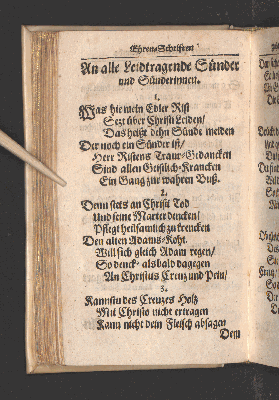 Ehren-Schrifften
An alle Leidtragende Sünder
und Sünderinnen.
1.
Was hie mein Edler Rist
Sezt über Christi Leiden/
Das heißt dehn Sünde meiden
Der noch ein Sünder ist/
Herr Ristens Traur-Gedancken
Sind allen Geistlich-Krancken
Ein Gang zur wahren Buß.
2.
Denn stets an Christi Tod
Und seine Marter dencken/
Pflegt heilsamlich zu krencken
Den alten Adams-Koht.
Will sich gleich Adam regen/
So denck' alsbald dagegen
An Christus Creuz und Pein/
3.
Kannstu des Creuzes Holz
Mit Christo nicht ertragen
Kann nicht dein Fleisch absagen
Dem